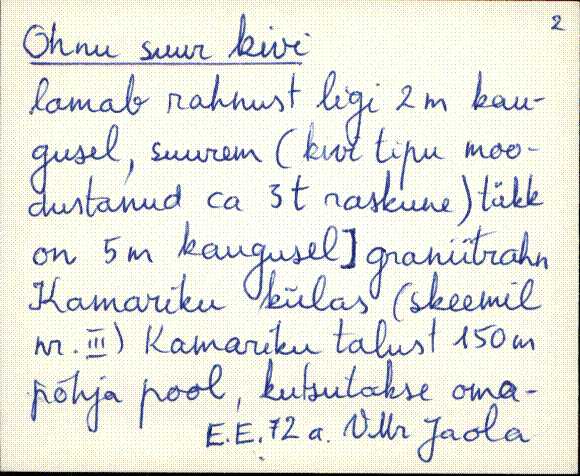 2
Ohnu suur kivi
lamab rahnust ligi 2 m kau-
gusel, suurem (kivi tipu moo-
dustanud ca 3 t raskune) tükk
on 5 m kaugusel] graniitrahn
Kamariku külas (skeemil
nr. III) Kamariku talust 150 m
põhja pool, kutsutakse oma-
E.E. 72 a. V. Mr Jaola